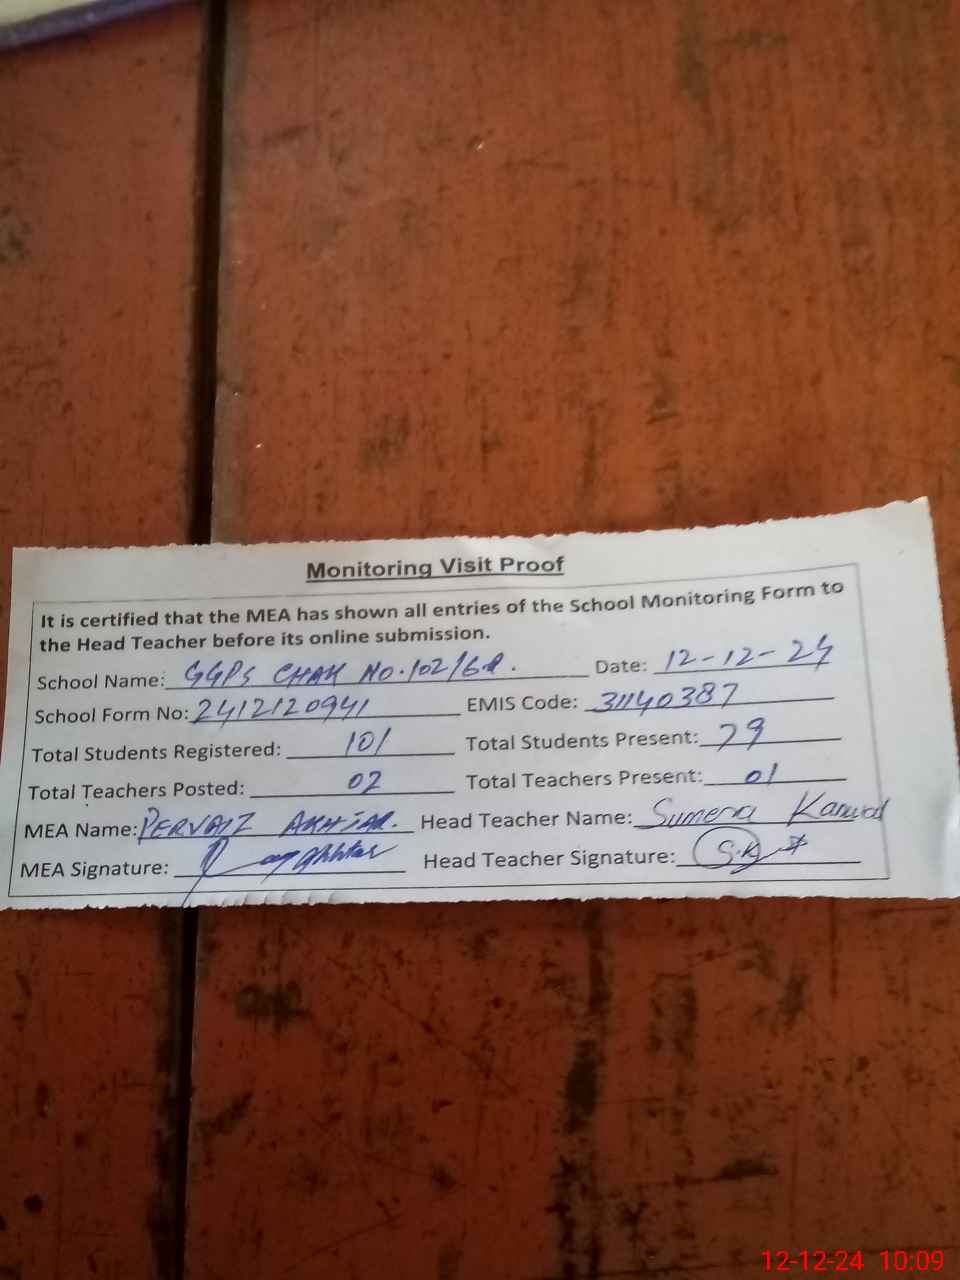 Monitoring Visit Proof
It is certified that the MEA has shown all entries of the School Monitoring Form to
the Head Teacher before its online submission.
School Name: GGPS CHAK NO.102/6R. Date: 12-12-24
School Form No: 2412120941 EMIS Code: 31140387
Total Students Registered: 101 Total Students Present: 79
Total Teachers Posted: 02 Total Teachers Present: 01
MEA Name: PERVAIZ AKHTAR. Head Teacher Name: Sumera Kanwal
MEA Signature: Head Teacher Signature: S.K
12-12-24 10:09